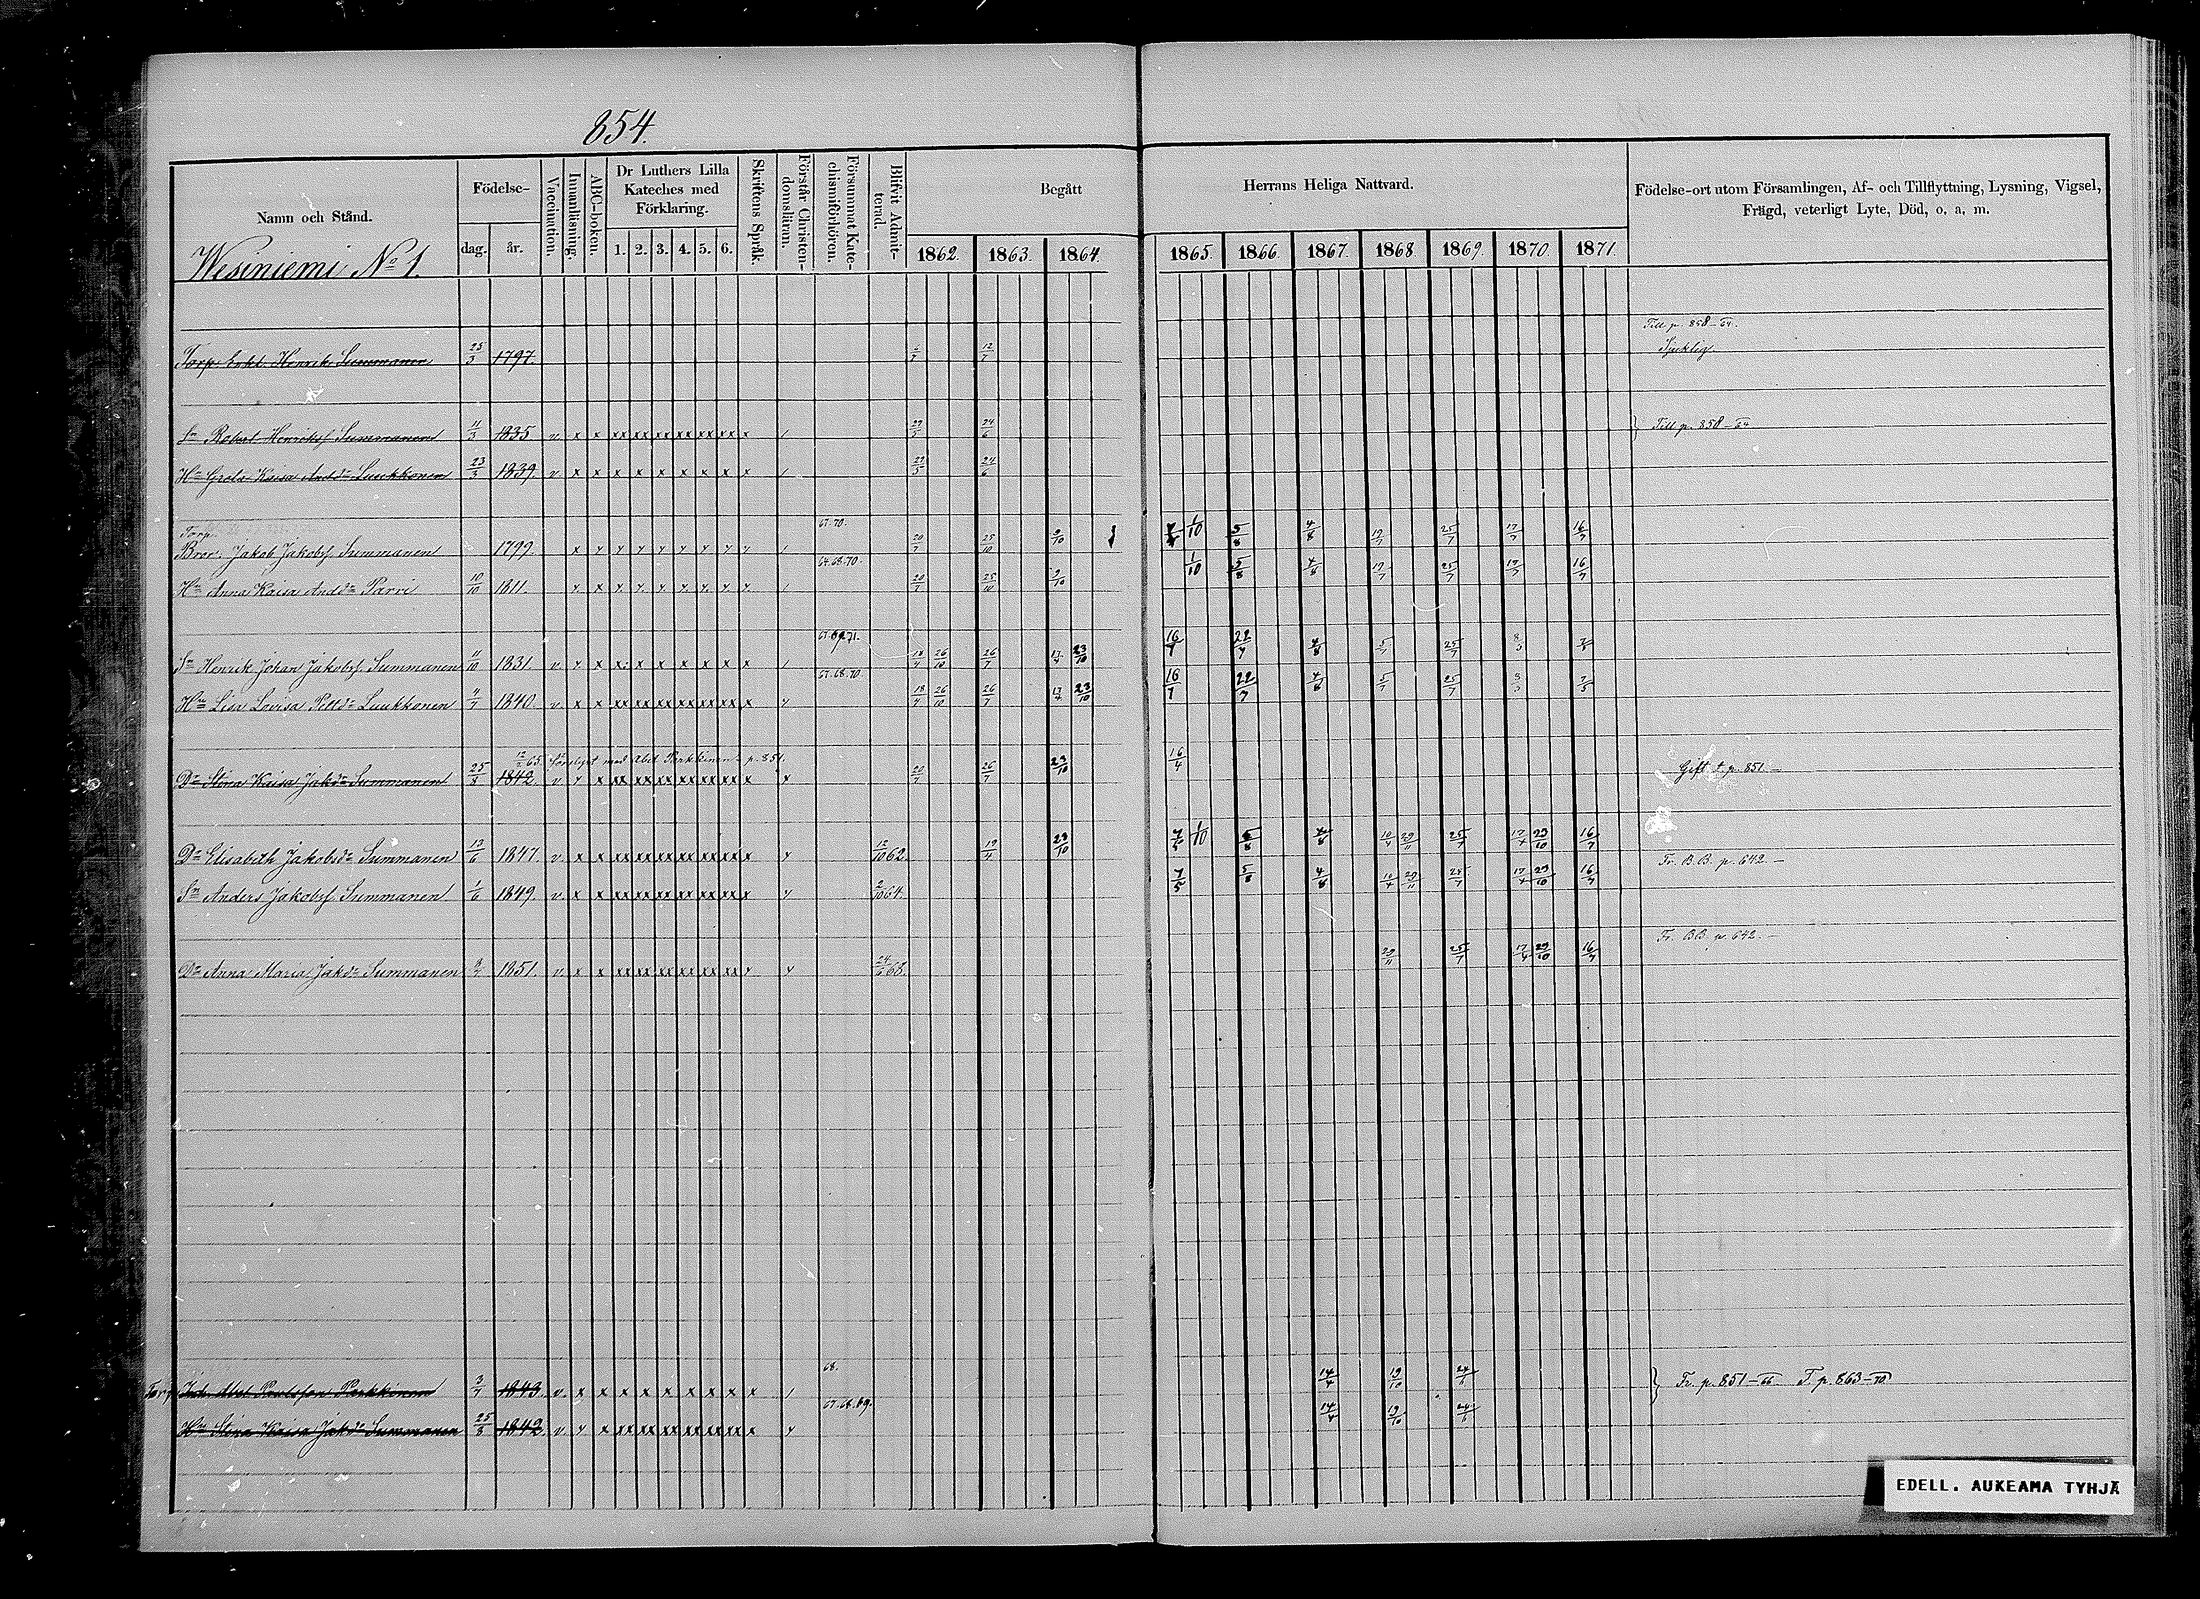 854.
Namn och Stånd.
Födelse-
dag. år.
Vaccination.
Innanläsning.
ABC-boken.
Dr Luthers Lilla Kateches med Förklaring.
1. 2. 3. 4. 5. 6.
Skriftens Språk.
Förstår Christendomsläran.
Försummat Katechismiförhören.
Blifvit Admitterad.
Begått Herrans Heliga Nattvard.
1862. 1863. 1864. 1865. 1866. 1867. 1868. 1869. 1870. 1871.
Födelse-ort utom Församlingen, Af- och Tillflyttning, Lysning, Vigsel,
Frägd, veterligt Lyte, Död, o. a. m.
Wesiniemi No 1.
Till p. 858-64.
Torp. Enkl. Henrik Summanen 25/3 1797. 12/7 Sjuklig.
Sn Robert Henriksf Summanen 11/3 1835 v x x xx xx xx xx xx xx x / 29/5 24/6 } Till p. 858-64
Hu Greta Kaisa Andsdr Luukkonen 23/3 1839. v x x x x x x x x x / 29/5 24/6
Torp. 67.70.
Bror. Jakob Jakobsf Summanen 1799. 20/7 25/10 9/10 1/10 5/8 4/8 17/7 25/7 17/7 16/7
64.68.70.
Hu Anna Kaisa Andsdr Parvi 10/10 1811. 20/7 25/10 9/10 1/10 5/8 4/8 17/7 25/7 17/7 16/7
Sn Henrik Johan Jakobsf. Summanen 11/10 1831. 18/4 26/10 26/7 17/4 23/10 16/7 22/7 4/8 5/7 25/7
67.68.70.
Hu Lisa Lovisa Pettdr Luukkonen 4/7 1840. 18/4 26/10 26/7 17/4 23/10 16/7 22/7 4/8 5/7 25/7
12/2 65. Sörslyst med Abel Parkkinen p. 851.
Dr Stina Kaisa Jakdr Summanen 25/3 1842. 20/7 26/7 23/10 16/4 Gift t. p. 851.-
Dr Elisabeth Jakobsdr Summanen 13/6 1847. 12/10 62. 19/4 23/10 7/5 1/10 5/8 4/8 10/4 29/11 25/7 17/4 29/10 16/7
Fr. B.B. p. 642.-
Sn Anders Jakobsf Summanen 1/6 1849. 2/10 64. 7/5 5/8 4/8 10/4 29/11 25/7 17/4 29/10 16/7
Fr. B.B. p. 642.-
Dr Anna Maria Jakdr Summanen 1851. 24/6 68. 29/11 25/7 17/4 29/10 16/7
68.
Torp. Inh. Abel Paulsson Parkkinen 3/7 1843. 14/4 19/10 24/6 } Fr. p. 851-66 T. p. 863-70.
67.68.69.
Hu Stina Kaisa Jakdr Summanen 25/3 1842 14/4 19/10 24/6
EDELL. AUKEAMA TYHJÄ